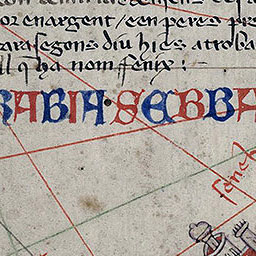 or enargent / e en peres pre
arasegons diu hies atroba
ll q ha nom fenix :
RABIA · SEBBA